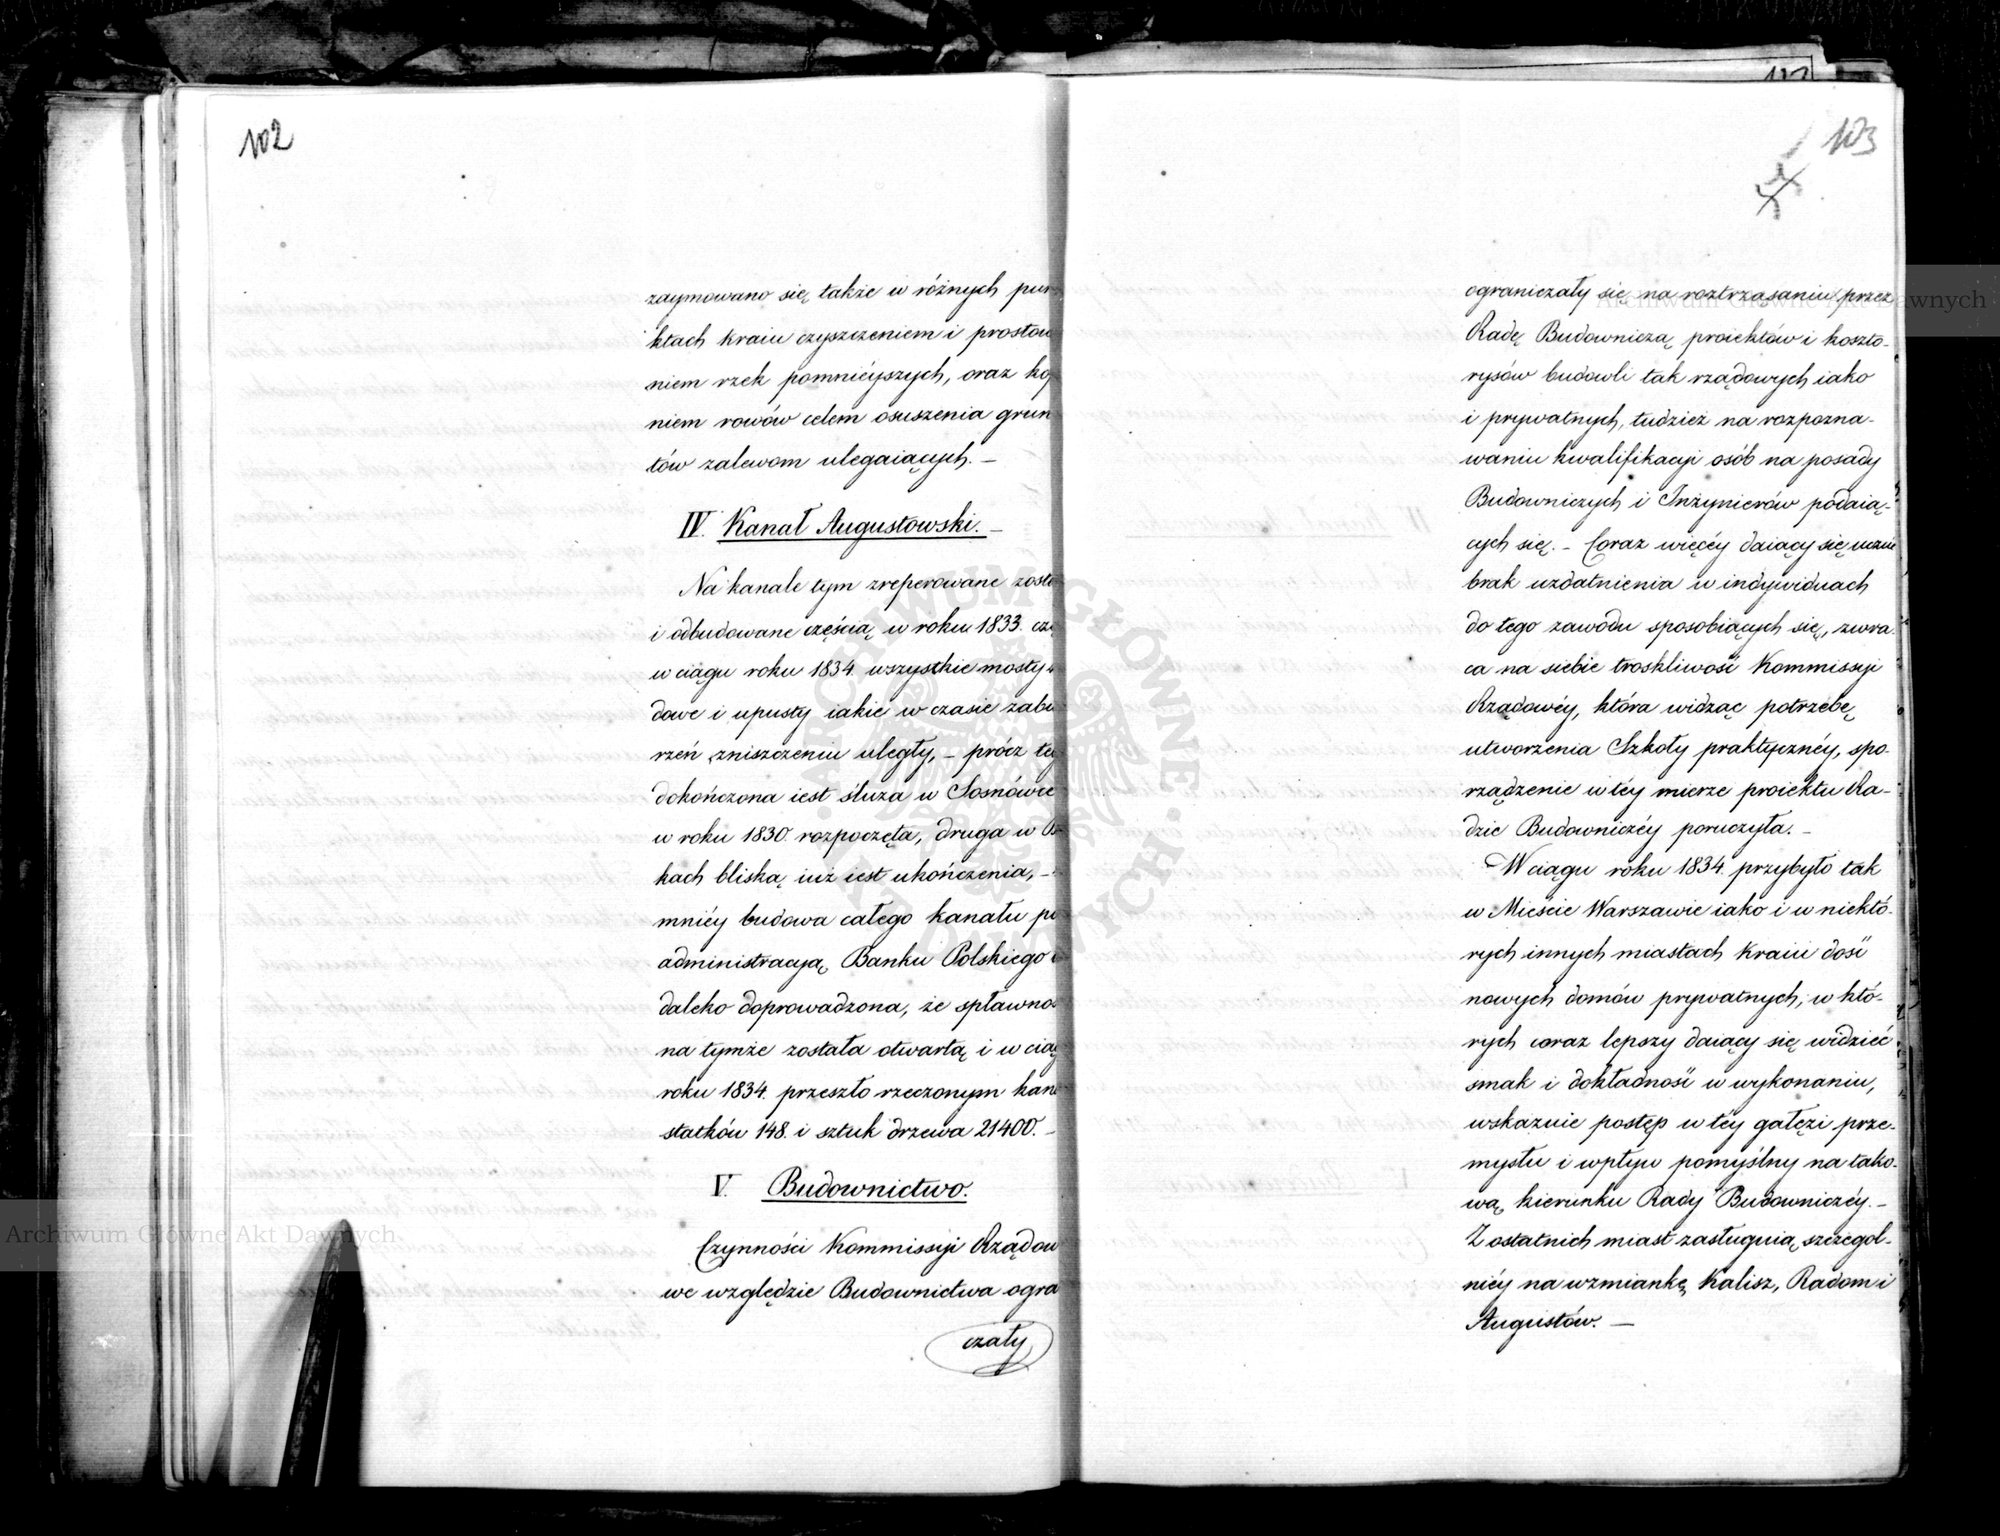 102
zaymowano się także w różnych pun
ktach kraiu czyszczeniem i prostow
niem rzek pomnieyszych, oraz kop
niem rowów celem osuszenia grun
tów zalewom ulegaiących. –
IV. Kanał Augustowski. –
Na kanale tym zreperowane zosta
i odbudowane częścią w roku 1833. czę
w ciągu roku 1834. wszystkie mosty
dowe i upusty iakie w czasie zabu
rzeń zniszczeniu uległy, – prócz teg
dokończona iest śluza w Sosnówce
w roku 1830. rozpoczęta, druga w
kach bliską iuż iest ukończenia, –
mniéy budowa całego kanału po
administracyą Banku Polskiego
daleko doprowadzona, że spławno
na tymże została otwartą i w ciąg
roku 1834. przeszło rzeczonym kana
statków 148. i sztuk drzewa 21400. –
V. Budownictwo.
Czynności Kommissyi Rządow
we względzie Budownictwa ogra
czały
103
ograniczały się na roztrząsaniu przez
Radę Budowniczą proiektów i koszto-
rysów budowli tak rządowych iako
i prywatnych, tudzież na rozpozna-
waniu kwalifikacyi osób na posady
Budowniczych i Inżynierów podaią-
cych się. – Coraz więcéy daiący się uczuć
brak uzdatnienia w indywiduach
do tego zawodu sposobiących się, zwra-
ca na siebie troskliwość Kommissyi
Rządowéy, która widząc potrzebę
utworzenia Szkoły praktycznéy, spo-
rządzenie w téy mierze proiektu Ra-
dzie Budowniczéy poruczyła. –
W ciągu roku 1834. przybyło tak
w Mieście Warszawie iako i w niektó-
rych innych miastach kraiu dość
nowych domów prywatnych, w któ-
rych coraz lepszy daiący się widzieć
smak i dokładność w wykonaniu,
wskazuie postęp w téy gałęzi prze-
mysłu i wpływ pomyślny na tako-
wą kierunku Rady Budowniczéy. –
Z ostatnich miast zasługuią szczegól-
niéy na wzmiankę Kalisz, Radom i
Augustów. –
Archiwum Główne Akt Dawnych
Archiwum Główne Akt Dawnych
ARCHIWUM GŁÓWNE AKT DAWNYCH